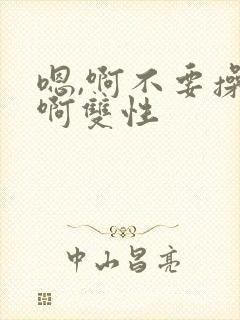 嗯,啊不要操
啊雙性
中山昌亮